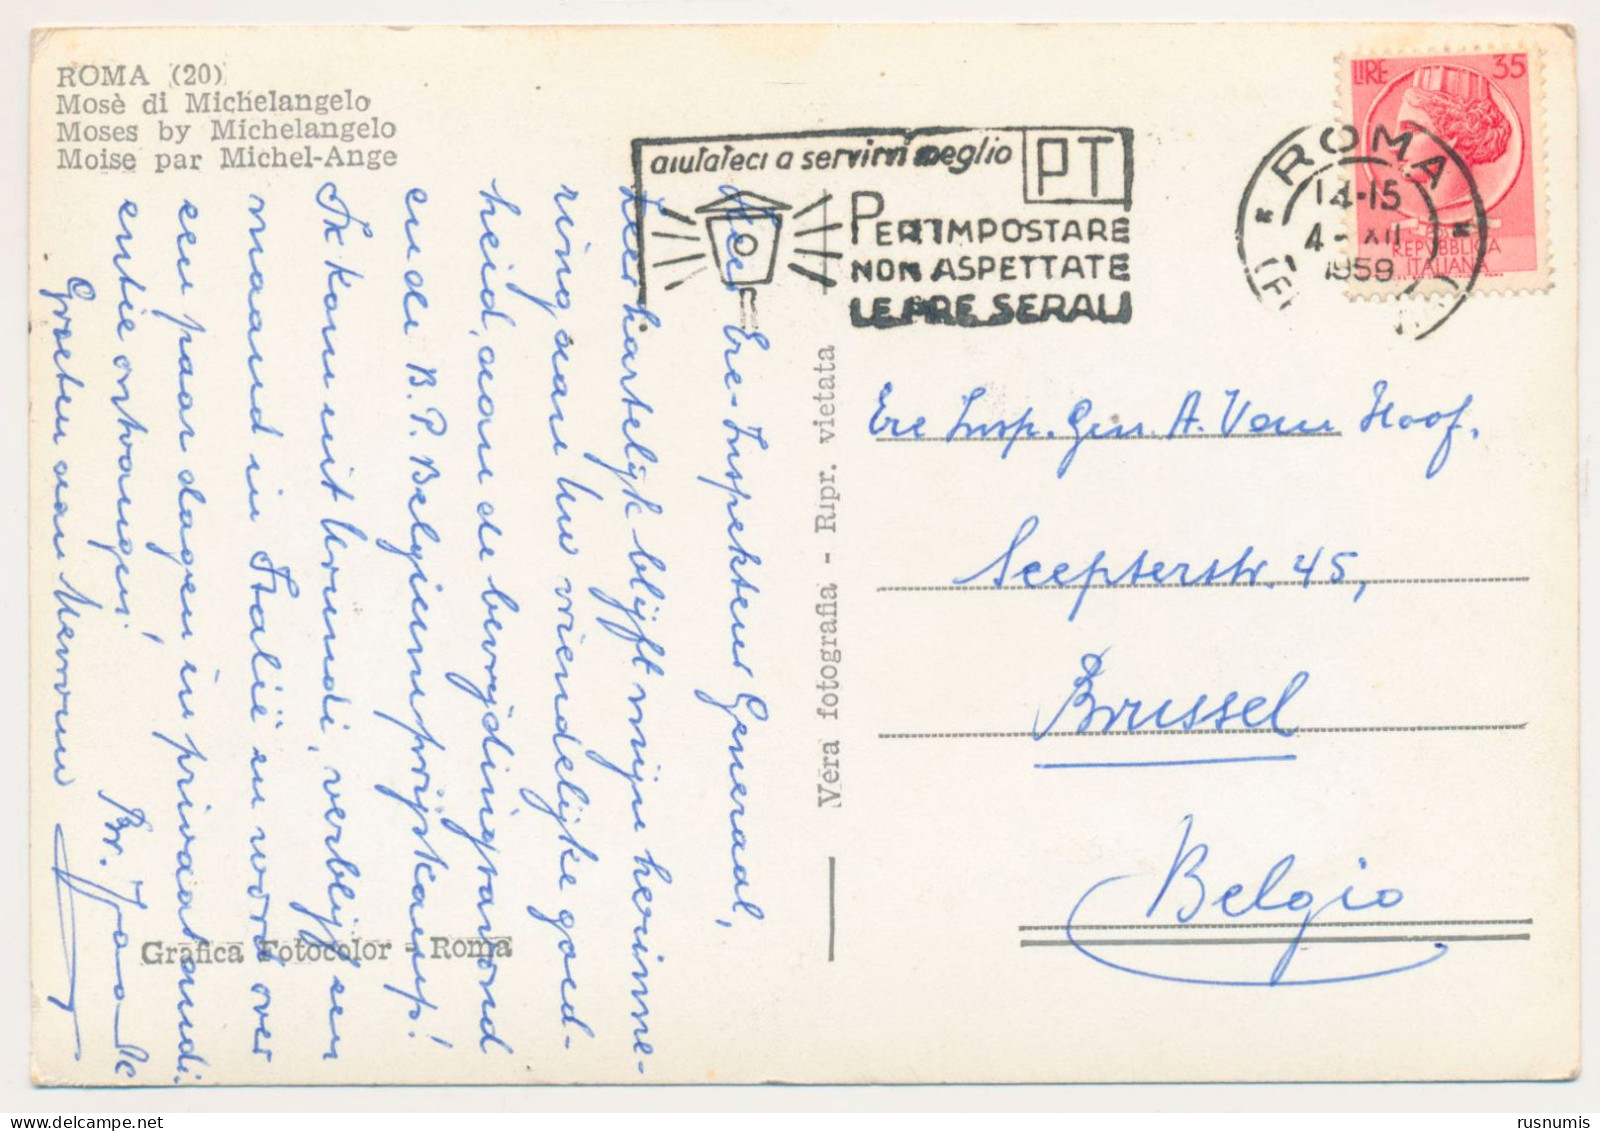 ROMA (20)
Mosè di Michelangelo
Moses by Michelangelo
Moise par Michel-Ange
aiutateci a servirvi meglio
PT
PER IMPOSTARE
NON ASPETTATE
LE ORE SERALI
ROMA
4 - XII
1959
LIRE 35
REPVBBLICA
ITALIANA
Ere-Inspekteur Generaal,
Zeer hartelijk blijft mijn herinne-
ring aan Uw vriendelijke goed-
heid, aan de bevrijdingsavond
en de B.P. Belgiumprijskamp!
Ik kom uit Urundi, verblijf een
maand in Italië en word over
een paar dagen in privaat audi-
entie ontvangen!
Groeten aan Mevrouw
Br.
Ere Insp. Gen. A. Van Hoof.
Scepterstr. 45,
Brussel
Belgio
Vera fotografia - Ripr. vietata
Grafica Fotocolor - Roma
rusnumis
www.delcampe.net